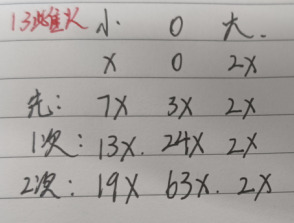 13堆火 小 0 大.
x 0 2x
先: 7x 3x 2x
1次: 13x. 24x 2x
2次: 19x 63x. 2x